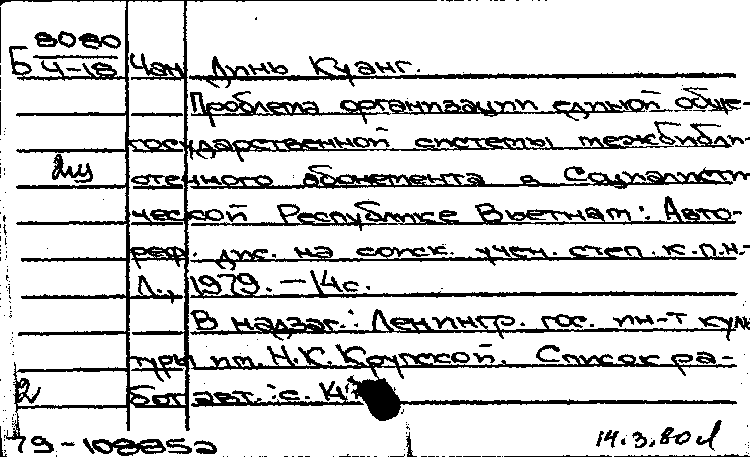 8080
Б Ч-18 Чан Динь Куанг.
Проблема организации единой обще-
государственной системы межбибли-
отечного абонемента в Социалисти
ческой Республике Вьетнам: Авто-
реф. дис. на соиск. учен. степ. к.п.н.-
Л., 1979. - 14с.
В надзаг.: Ленингр. гос. ин-т куль
туры им. Н.К. Крупской. Список ра-
2 бот авт.: с. 14
79-10885а
14.3.80